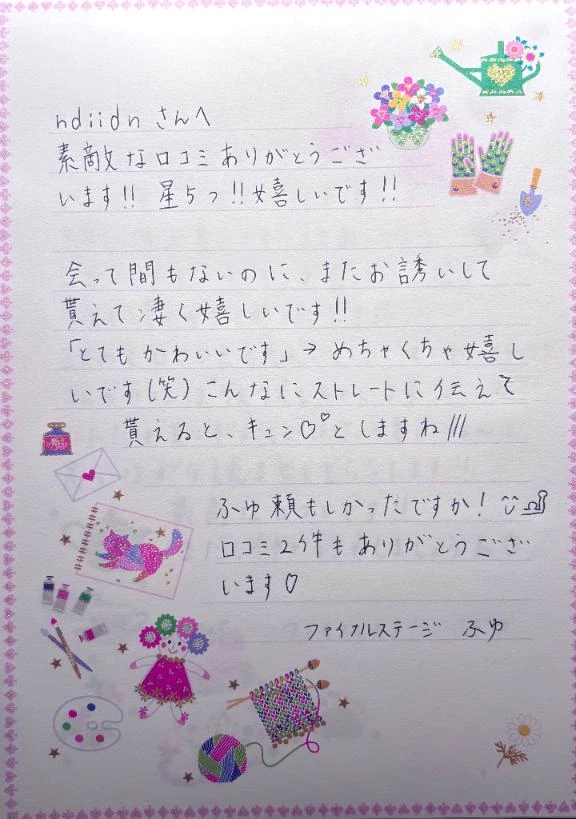 ndiidnさんへ
素敵な口コミありがとうござ
います!! 星5つ!!嬉しいです!!
会って間もないのに、またお誘いして
貰えて凄く嬉しいです!!
「とてもかわいいです」→めちゃくちゃ嬉し
いです(笑)こんなにストレートに伝えて
貰えると、キュン♡♡としますね///
ふゆ頼もしかったですか!
口コミ2件もありがとうござ
います♡
ファイナルステージ ふゆ